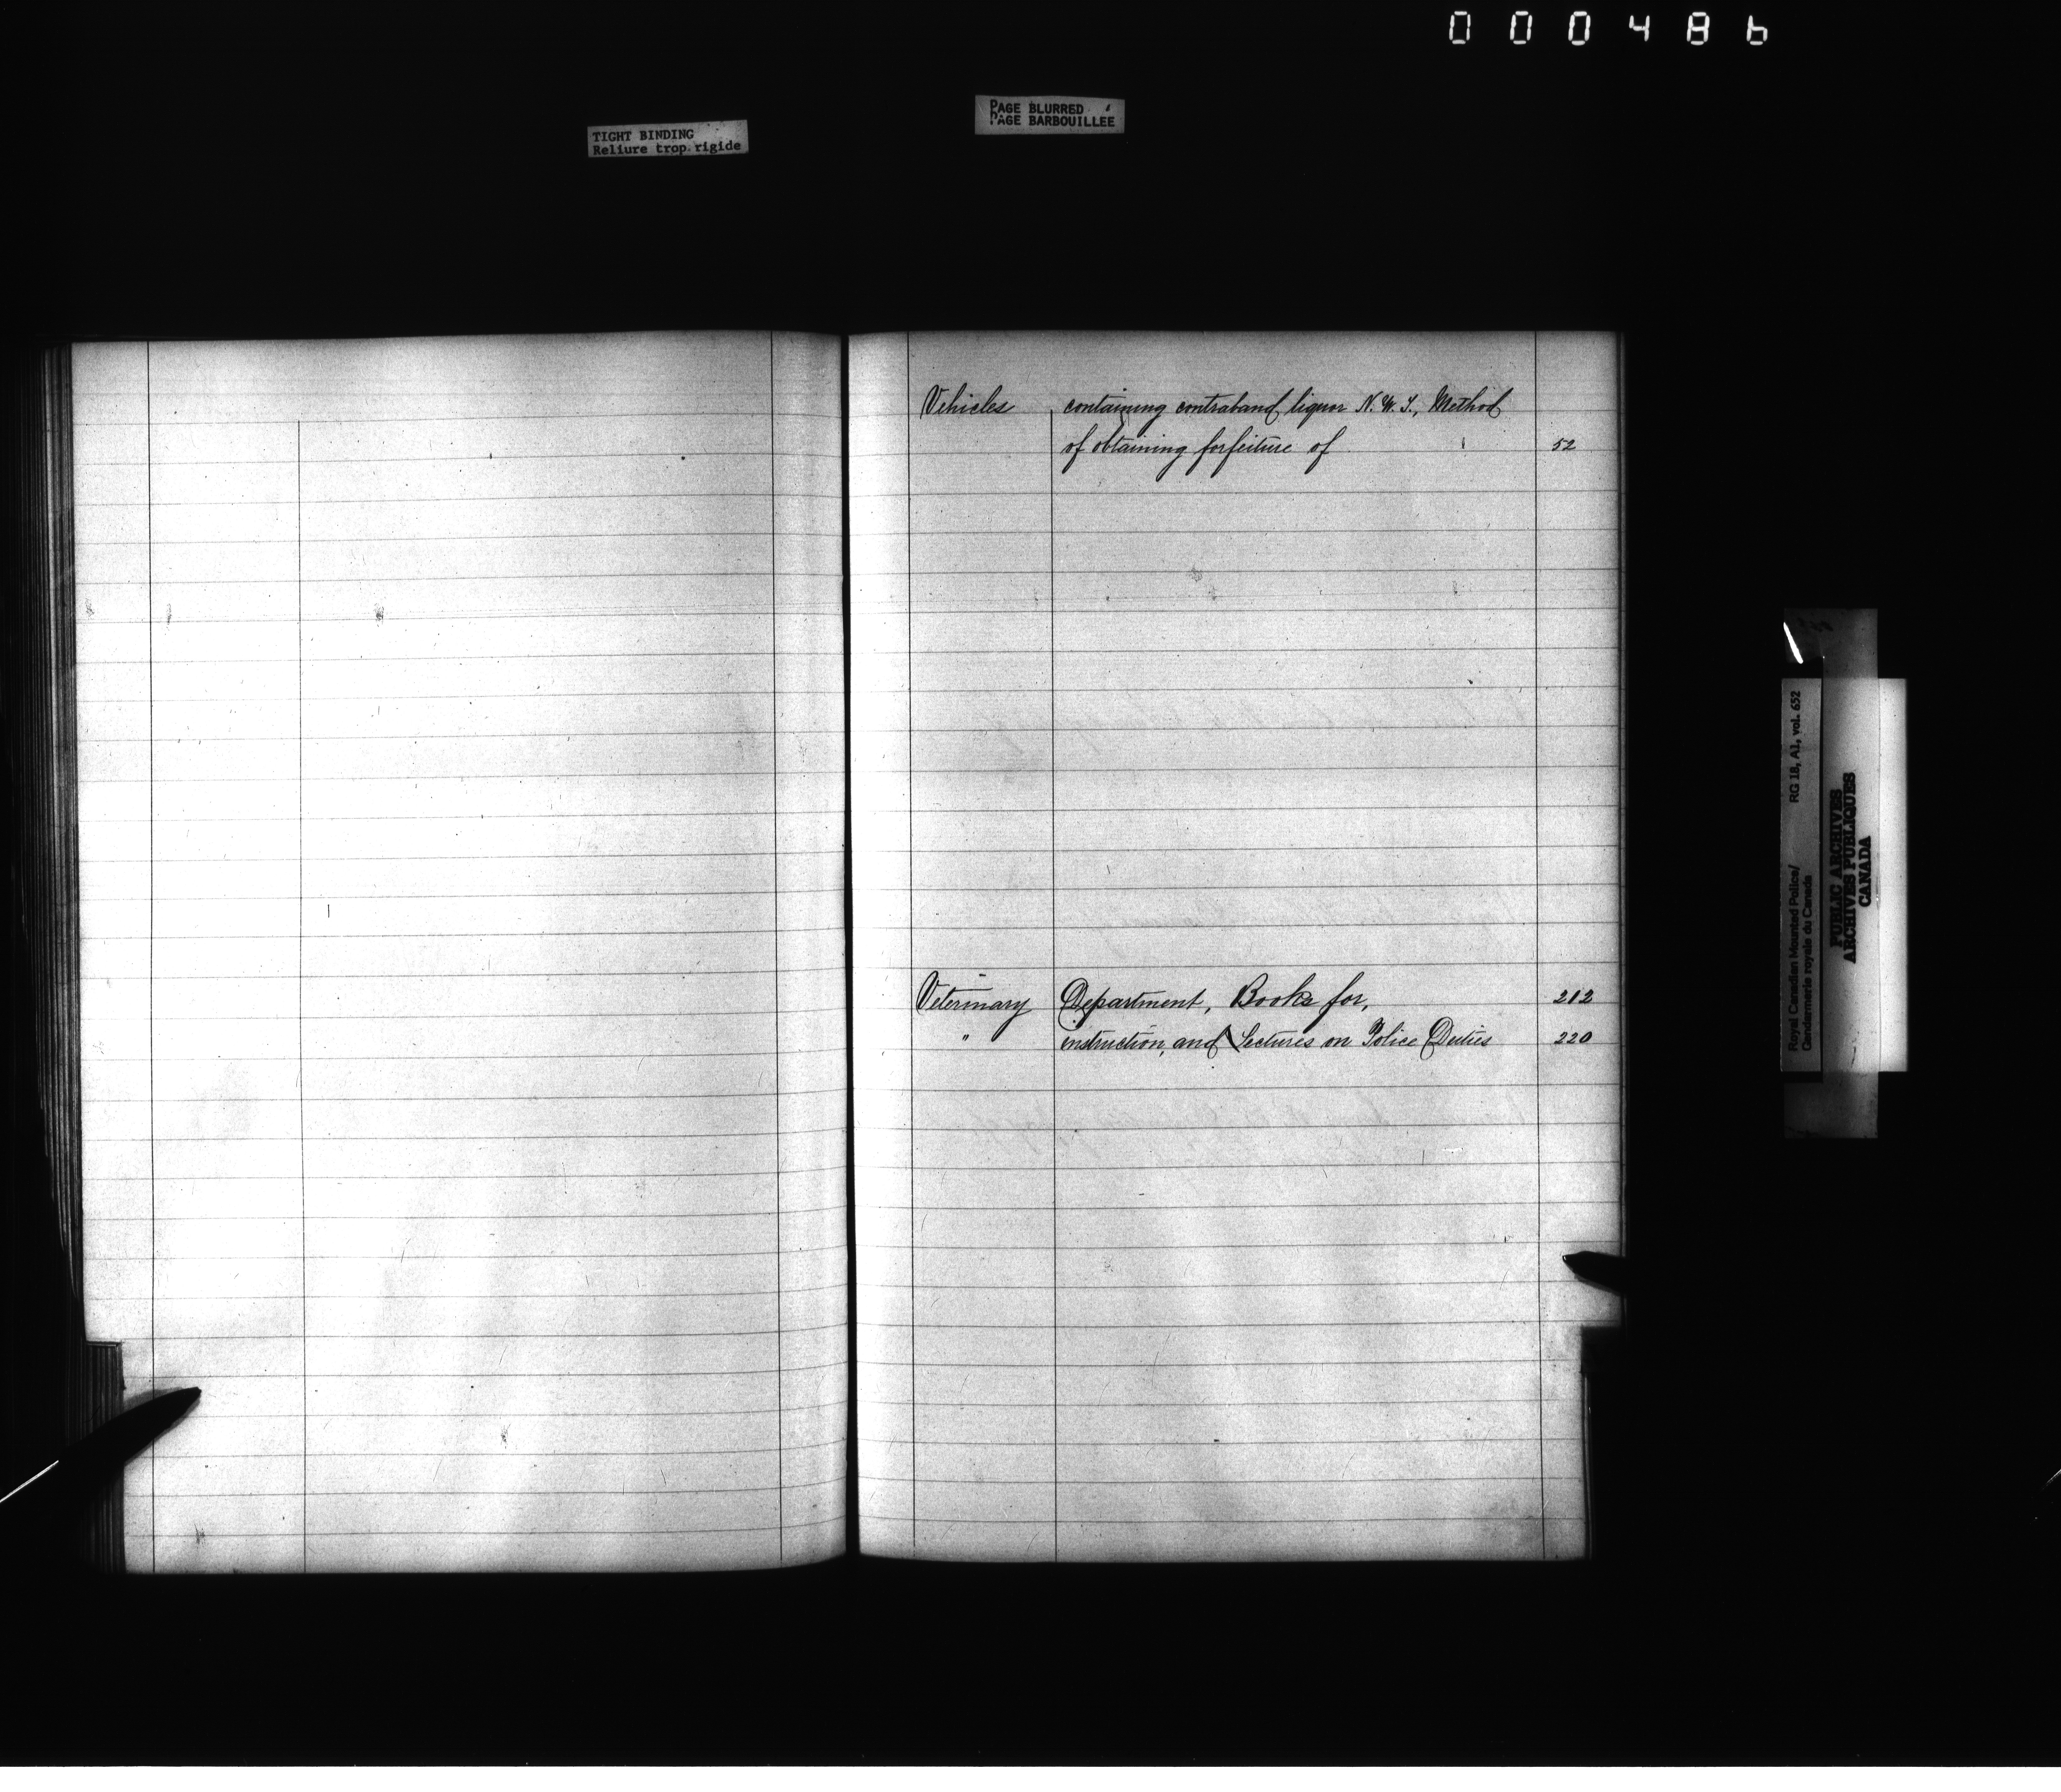 000486
TIGHT BINDING
Reliure trop rigide
PAGE BLURRED
PAGE BARBOUILLÉE
Vehicles containing contraband liquor N.W.T., Method
of obtaining forfeiture of 52
Veterinary Department, Books for, 212
" instruction, and Lectures on Police Duties 220
Royal Canadian Mounted Police/ RG 18, A1, vol. 652
Gendarmerie royale du Canada
PUBLIC ARCHIVES
ARCHIVES PUBLIQUES
CANADA